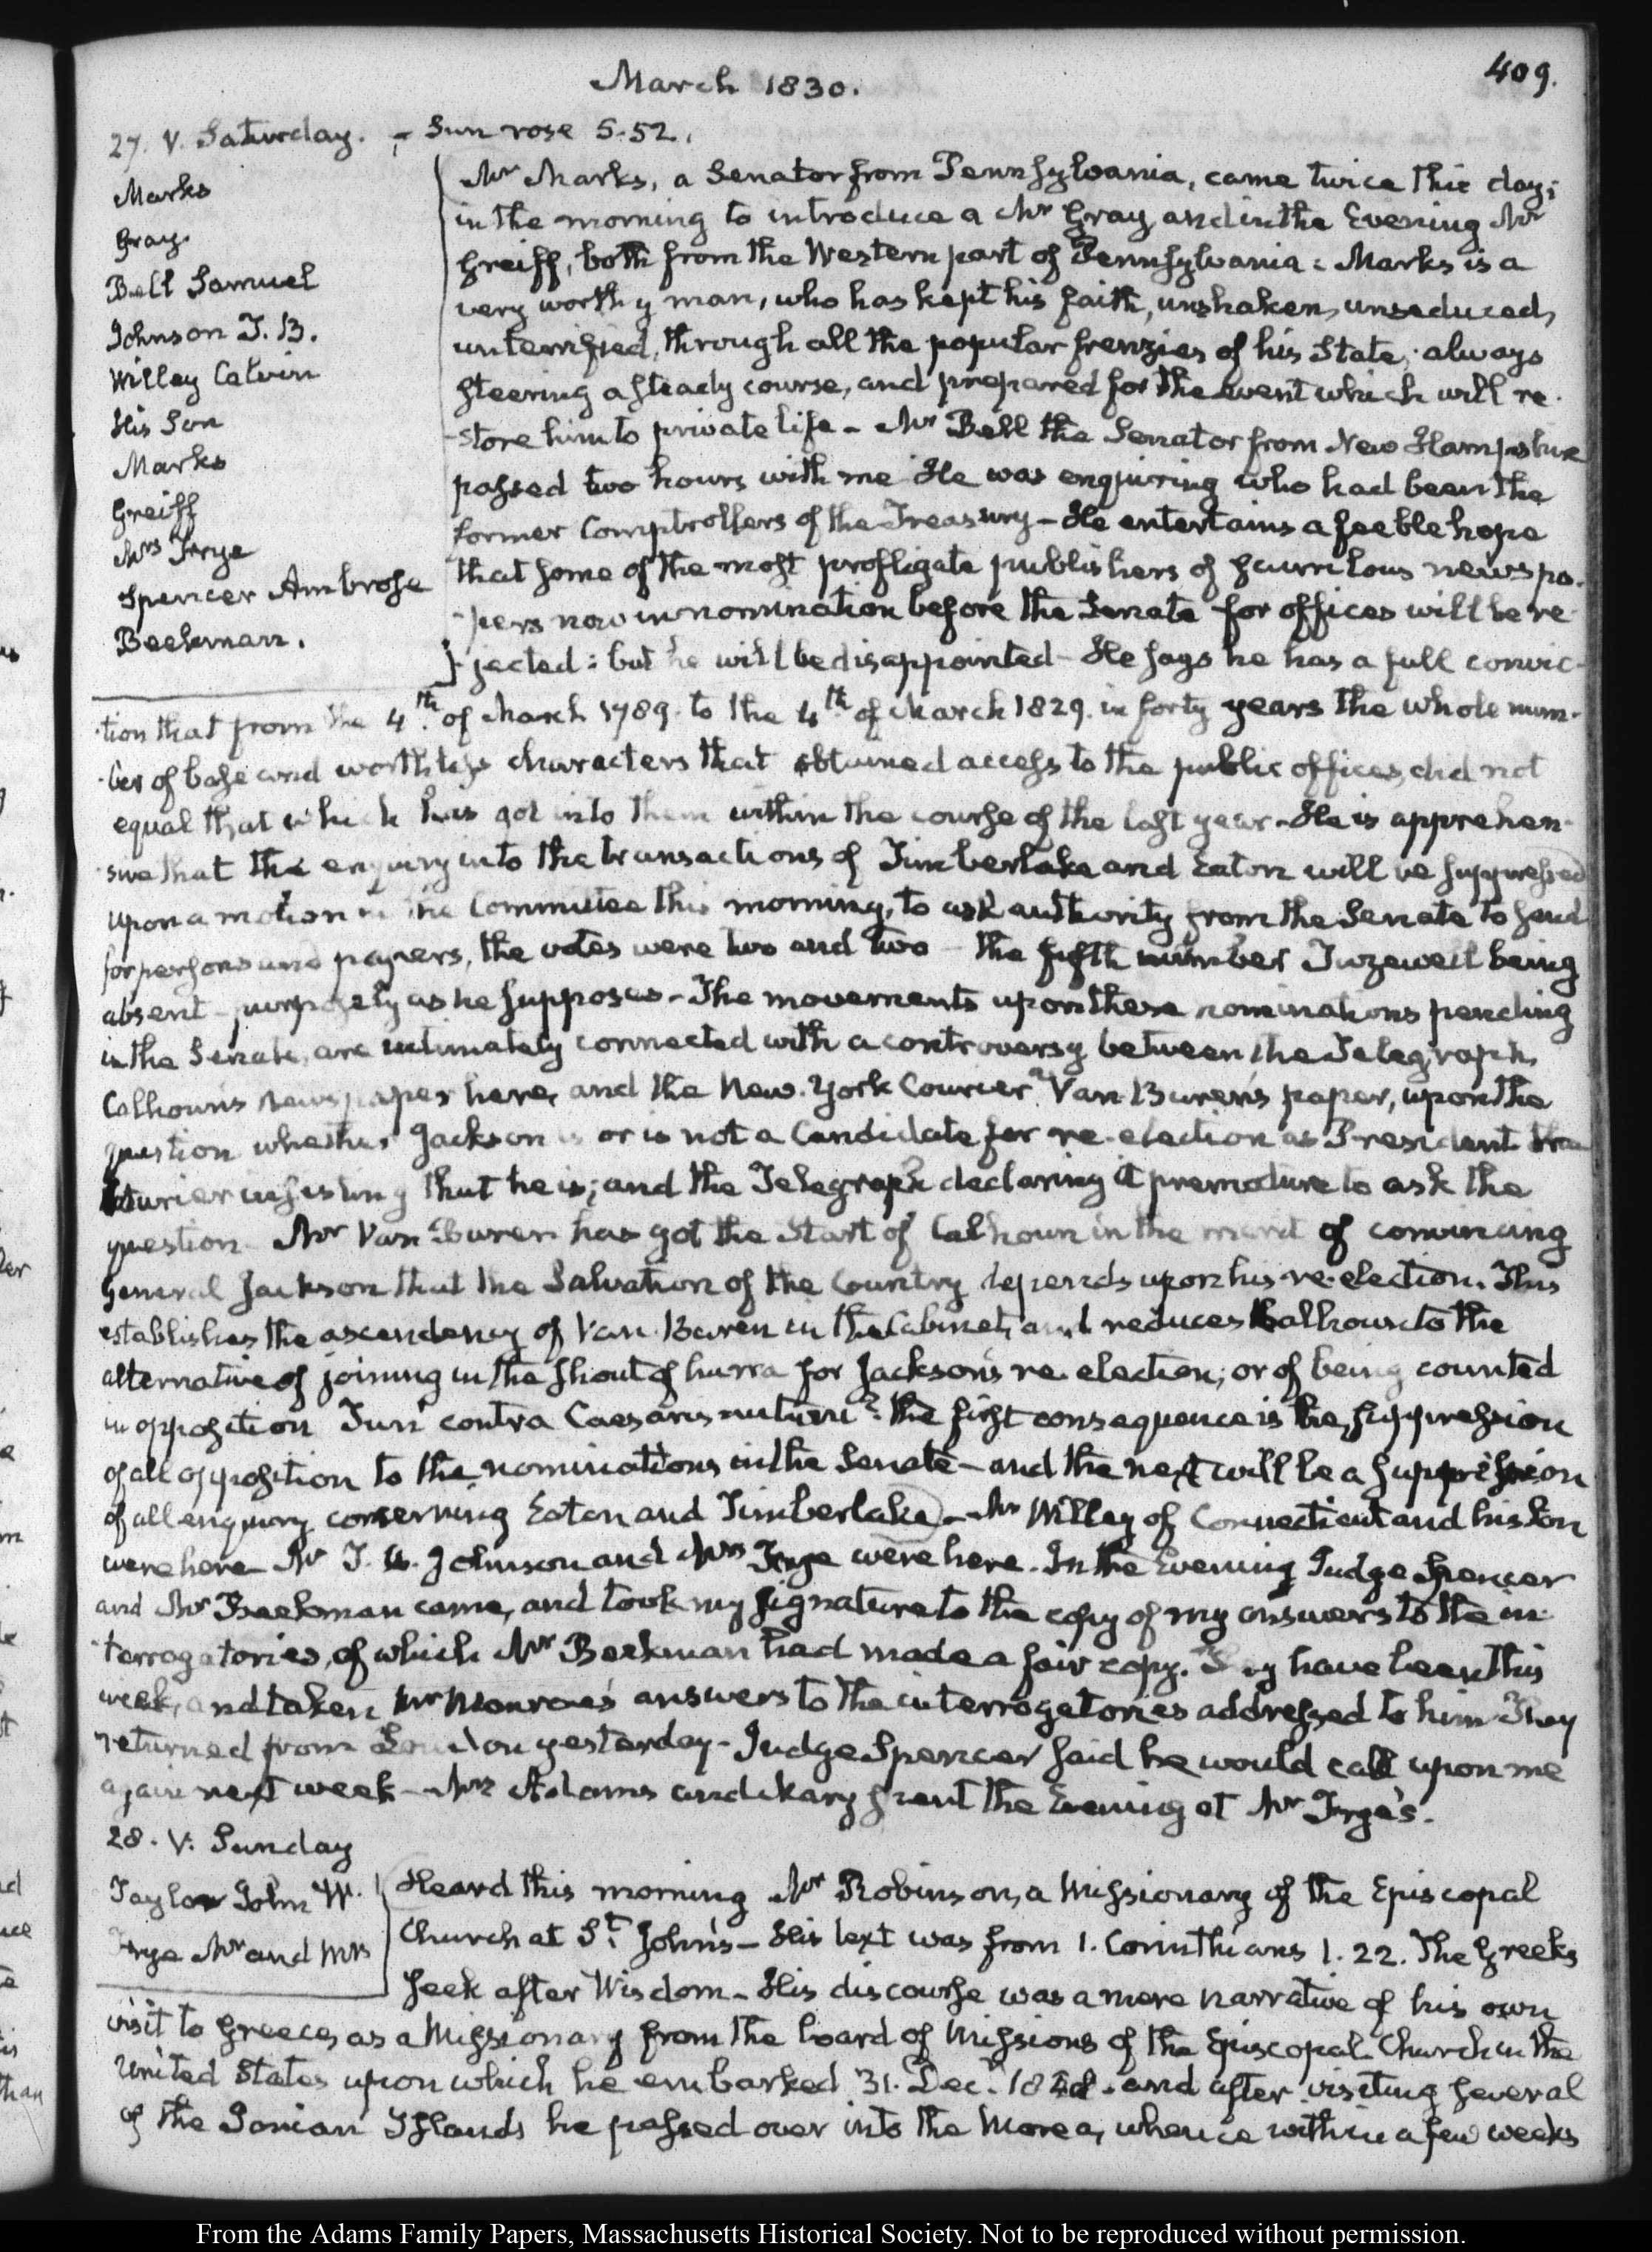 409.
March 1830.
27. V. Saturday. — Sun rose 5-52.
Marks
Gray.
Bell Samuel
Johnson J. B.
Willey Calvin
His Son
Marks
Greiff
Mrs Frye
Spencer Ambrose
Beekman.
Mr Marks, a Senator from Pennsylvania, came twice this day;
in the morning to introduce a Mr Gray, and in the Evening Mr
Greiff, both from the Western part of Pennsylvania: Marks is a
very worthy man, who has kept his faith, unshaken, unseduced,
unterrified, through all the popular frenzies of his State; always
steering a steady course, and prepared for the event which will re-
-store him to private life — Mr Bell the Senator from New Hampshire
passed two hours with me He was enquiring who had been the
former Comptrollers of the Treasury — He entertains a feeble hope
that some of the most profligate publishers of scurrilous newspa-
-pers now in nomination before the Senate for offices will be re-
-jected: but he will be disappointed — He says he has a full convic-
-tion that from the 4th. of March 1789. to the 4th. of March 1829. in forty years the whole num-
-ber of base and worthless characters that obtained access to the public offices, did not
equal that which has got into them within the course of the last year — He is apprehen-
-sive that the enquiry into the transactions of Timberlake and Eaton will be suppressed
upon a motion in the Committee this morning, to ask authority from the Senate to send
for persons and papers, the votes were two and two — the fifth member Tazewell being
absent — purposely as he supposes — The movements upon these nominations pending
in the Senate, are intimately connected with a controversy between the Telegraph,
Calhoun's newspaper here, and the New-York Courier, Van Buren's paper, upon the
question whether Jackson is or is not a Candidate for re-election as President the
Courier insisting that he is; and the Telegraph declaring it premature to ask the
question — Mr Van Buren has got the Start of Calhoun in the merit of convincing
General Jackson that the Salvation of the Country depends upon his re-election. This
establishes the ascendency of Van Buren in the Cabinet, and reduces Calhoun to the
alternative of joining in the shout of hurra for Jackson's re-election; or of being counted
in opposition Turi contra Caesaris nutum? the first consequence is the suppression
of all opposition to the nominations in the Senate — and the next will be a suppression
of all enquiry concerning Eaton and Timberlake — Mr Willey of Connecticut and his Son
were here Mr J. B. Johnson and Mrs Frye were here. In the Evening Judge Spencer
and Mr Beekman came, and took my signature to the copy of my answers to the in-
-terrogatories, of which Mr Beekman had made a fair copy. They have been this
week, and taken Mr Monroe's answers to the interrogatories addressed to him They
returned from Loudon yesterday — Judge Spencer said he would call upon me
again next week — Mrs Adams and Mary spent the Evening at Mr Frye's.
28. V. Sunday
Taylor John W.
Frye Mr and Mrs
Heard this morning Mr Robinson, a Missionary of the Episcopal
Church at St. John's — His text was from 1. Corinthians 1. 22. The Greeks
seek after Wisdom — His discourse was a mere narrative of his own
visit to Greece, as a Missionary from the board of Missions of the Episcopal Church in the
United States upon which he embarked 31. Decr. 1828. and after visiting several
of the Ionian Islands he passed over into the Morea, whence within a few weeks
From the Adams Family Papers, Massachusetts Historical Society. Not to be reproduced without permission.